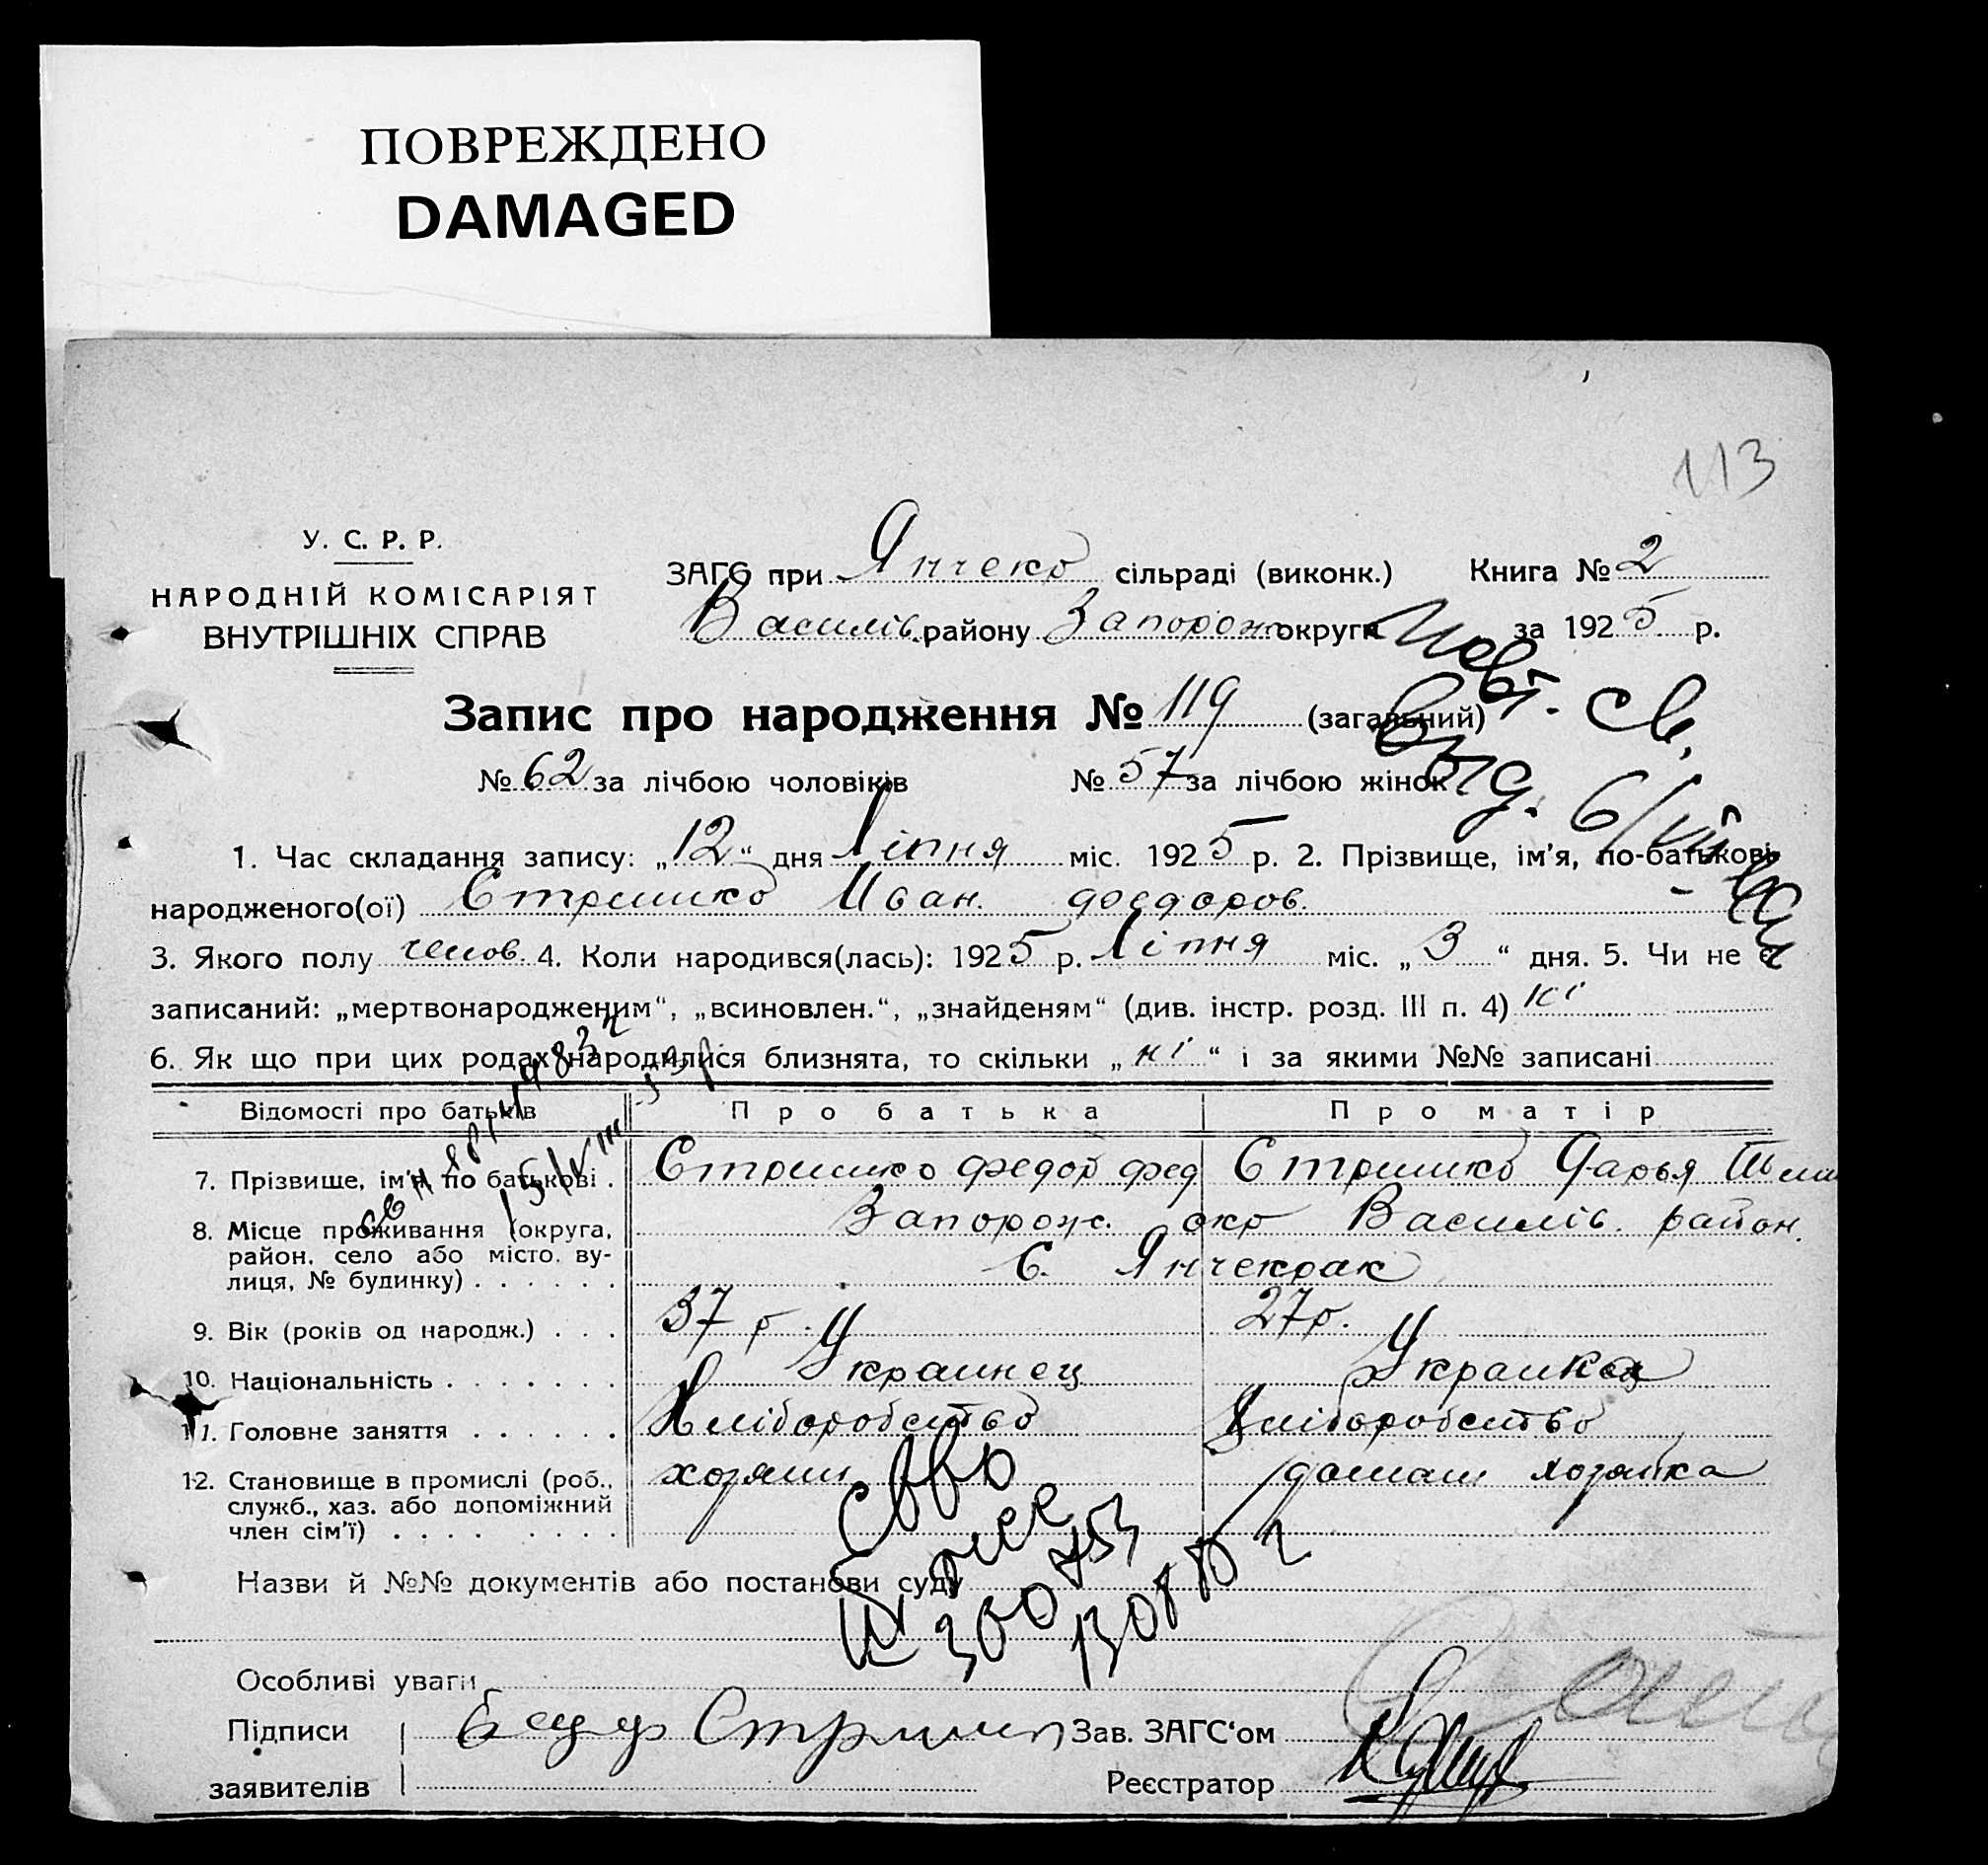 ПОВРЕЖДЕНО
DAMAGED
113
У. С. Р. Р.
НАРОДНІЙ КОМІСАРІЯТ
ВНУТРІШНІХ СПРАВ
ЗАГС при Янчекр сільраді (виконк.) Книга № 2
Василів. району Запорож округи за 1925 р.
Запис про народження № 119 (загальний)
Повт. св.
выд. 6/VII
№ 62 за лічбою чоловіків № 57 за лічбою жінок
1. Час складання запису: „12“ дня Ліпня міс. 1925 р. 2. Прізвище, ім'я, по-батькові
народженого(ої) Стришко Иван Феедоров.
3. Якого полу челов. 4. Коли народився(лась): 1925 р. Ліпня міс. „3“ дня. 5. Чи не є
записаний: „мертвонародженим“, „всиновлен.“, „знайденям“ (див. інстр. розд. III п. 4) ні
6. Як що при цих родах народилися близнята, то скільки „ні“ і за якими №№ записані
Відомості про батьків Про батька Про матір
7. Прізвище, ім'я, по батькові . Стришко Федор Фед Стришко Дарья
8. Місце проживання (округа, Запорож. окр Василів. район.
район, село або місто, ву-
лиця, № будинку) . . . . . . С. Янчекрак
9. Вік (років од народж.) . . . 37 р. 27 р.
10. Національність . . . . . . . Украинец Украинка
11. Головне заняття . . . . . . Хліборобство Хліборобство
12. Становище в промислі (роб., хозяин домаш хозяйка
служб., хаз. або допоміжний
член сім'ї) . . . . . . . .
Назви й №№ документів або постанови суду
300753
Особливі уваги
Підписи Зав. ЗАГС'ом
заявителів Реєстратор